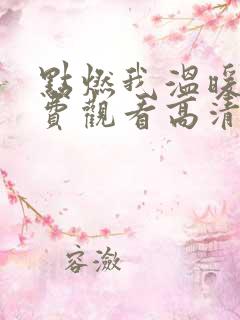 點燃我溫暖
費觀看高清
容瀲